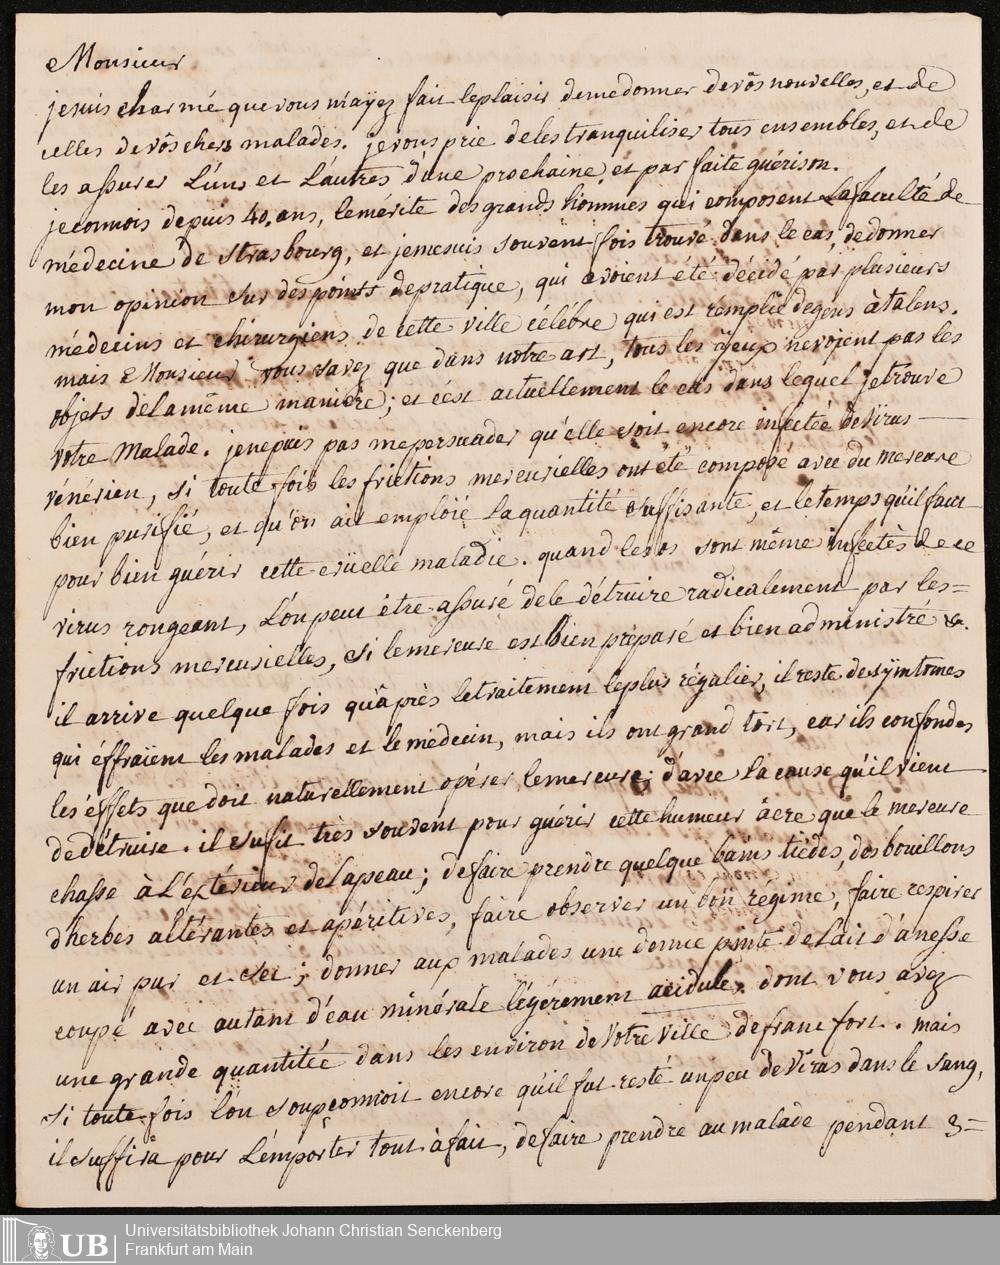 Monsieur
je suis charmé que vous m'ayez fait le plaisir de me donner de vôs nouvelles, et de
celles de vôs chers malades. je vous prie de les tranquiliser tous ensembles, et de
les assurer L'un, et L'autres d'une prochaine, et par faite guérison.
je connois depuis 40. ans, le mérite des grands hommes qui composent La faculté de
médecine de Strasbourg, et je me suis souvent fois trouvé dans le cas, de donner
mon opinion sur des points de pratique, qui avoient été décidé par plusieurs
médecins et chirurgiens de cette ville célébre qui est remplie de gens à talens.
mais Monsieur vous savez que dans notre art, tous les ÿeux ne voÿent pas les
objets de la même maniére; et c'est actuellement le cas dans lequel je trouve
votre Malade. je ne puis pas me persuader qu'elle soit encore infectée de Virus
vénérien, si toute fois les frictions mercurielles ont été composé avec du mercure
bien purifié, et qu'on ait emploié la quantité suffisante, et le temps qu'il faut
pour bien guérir cette crüelle maladie. quand les os sont même infectès de ce
virus rongeant, L'on peut être assuré de le détruire radicalement par les=
frictions mercurielles, si le mercure est bien préparé et bien administré &.
il arrive quelque fois qu'après le traitement le plus régulier, il reste de sÿmtomes
qui éffraïent les malades et le médecin, mais ils ont grand tort, car ils confondes
les éffets que doit naturellement opérer le mercure; d'avec la cause qu'il vient
de détruire. il sufit très souvent pour guérir cette humeur âcre que le mercure
chasse à L'extérieur de La peau; de faire prendre quelque bains tiédes, des bouillons
d'herbes altérantes et apéritives, faire observer un bon régime, faire respirer
un air pur et sec; donner aux malades une demie pinte de Lait d'ânesse
coupé avec autant d'éau minérale légérement acidule, dont vous avez
une grande quantitée dans les environ de Votre Ville de franc fort. mais
si toute fois l'on soupçonnoit encore qu'il fut resté un peu de Virus dans le sang,
il suffira pour L'émporter tout à fait, de faire prendre au malade pendant 3=
UB Universitätsbibliothek Johann Christian Senckenberg
Frankfurt am Main